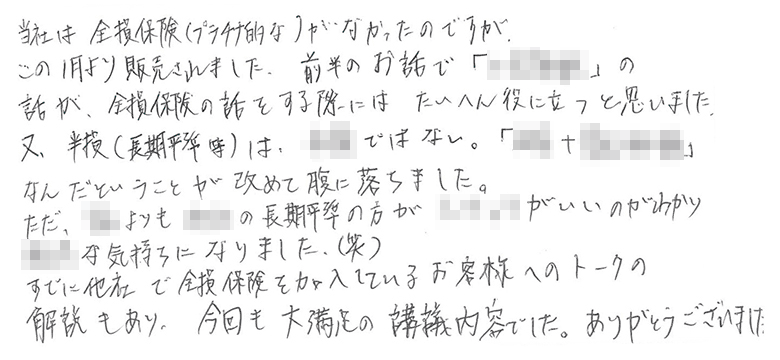 当社は全損保険(プラチナ的な)がなかったのですが、
この1月より販売されました。前半のお話で「」の
話が、全損保険の話をする際にはたいへん役に立つと思いました。
又、半損(長期平準等)は、ではない。「+」
なんだということが改めて腹に落ちました。
ただ、よりもの長期平準の方ががいいのがわかり
な気持ちになりました。(笑)
すでに他社で全損保険を加入しているお客様へのトークの
解説もあり、今回も大満足の講義内容でした。ありがとうございました